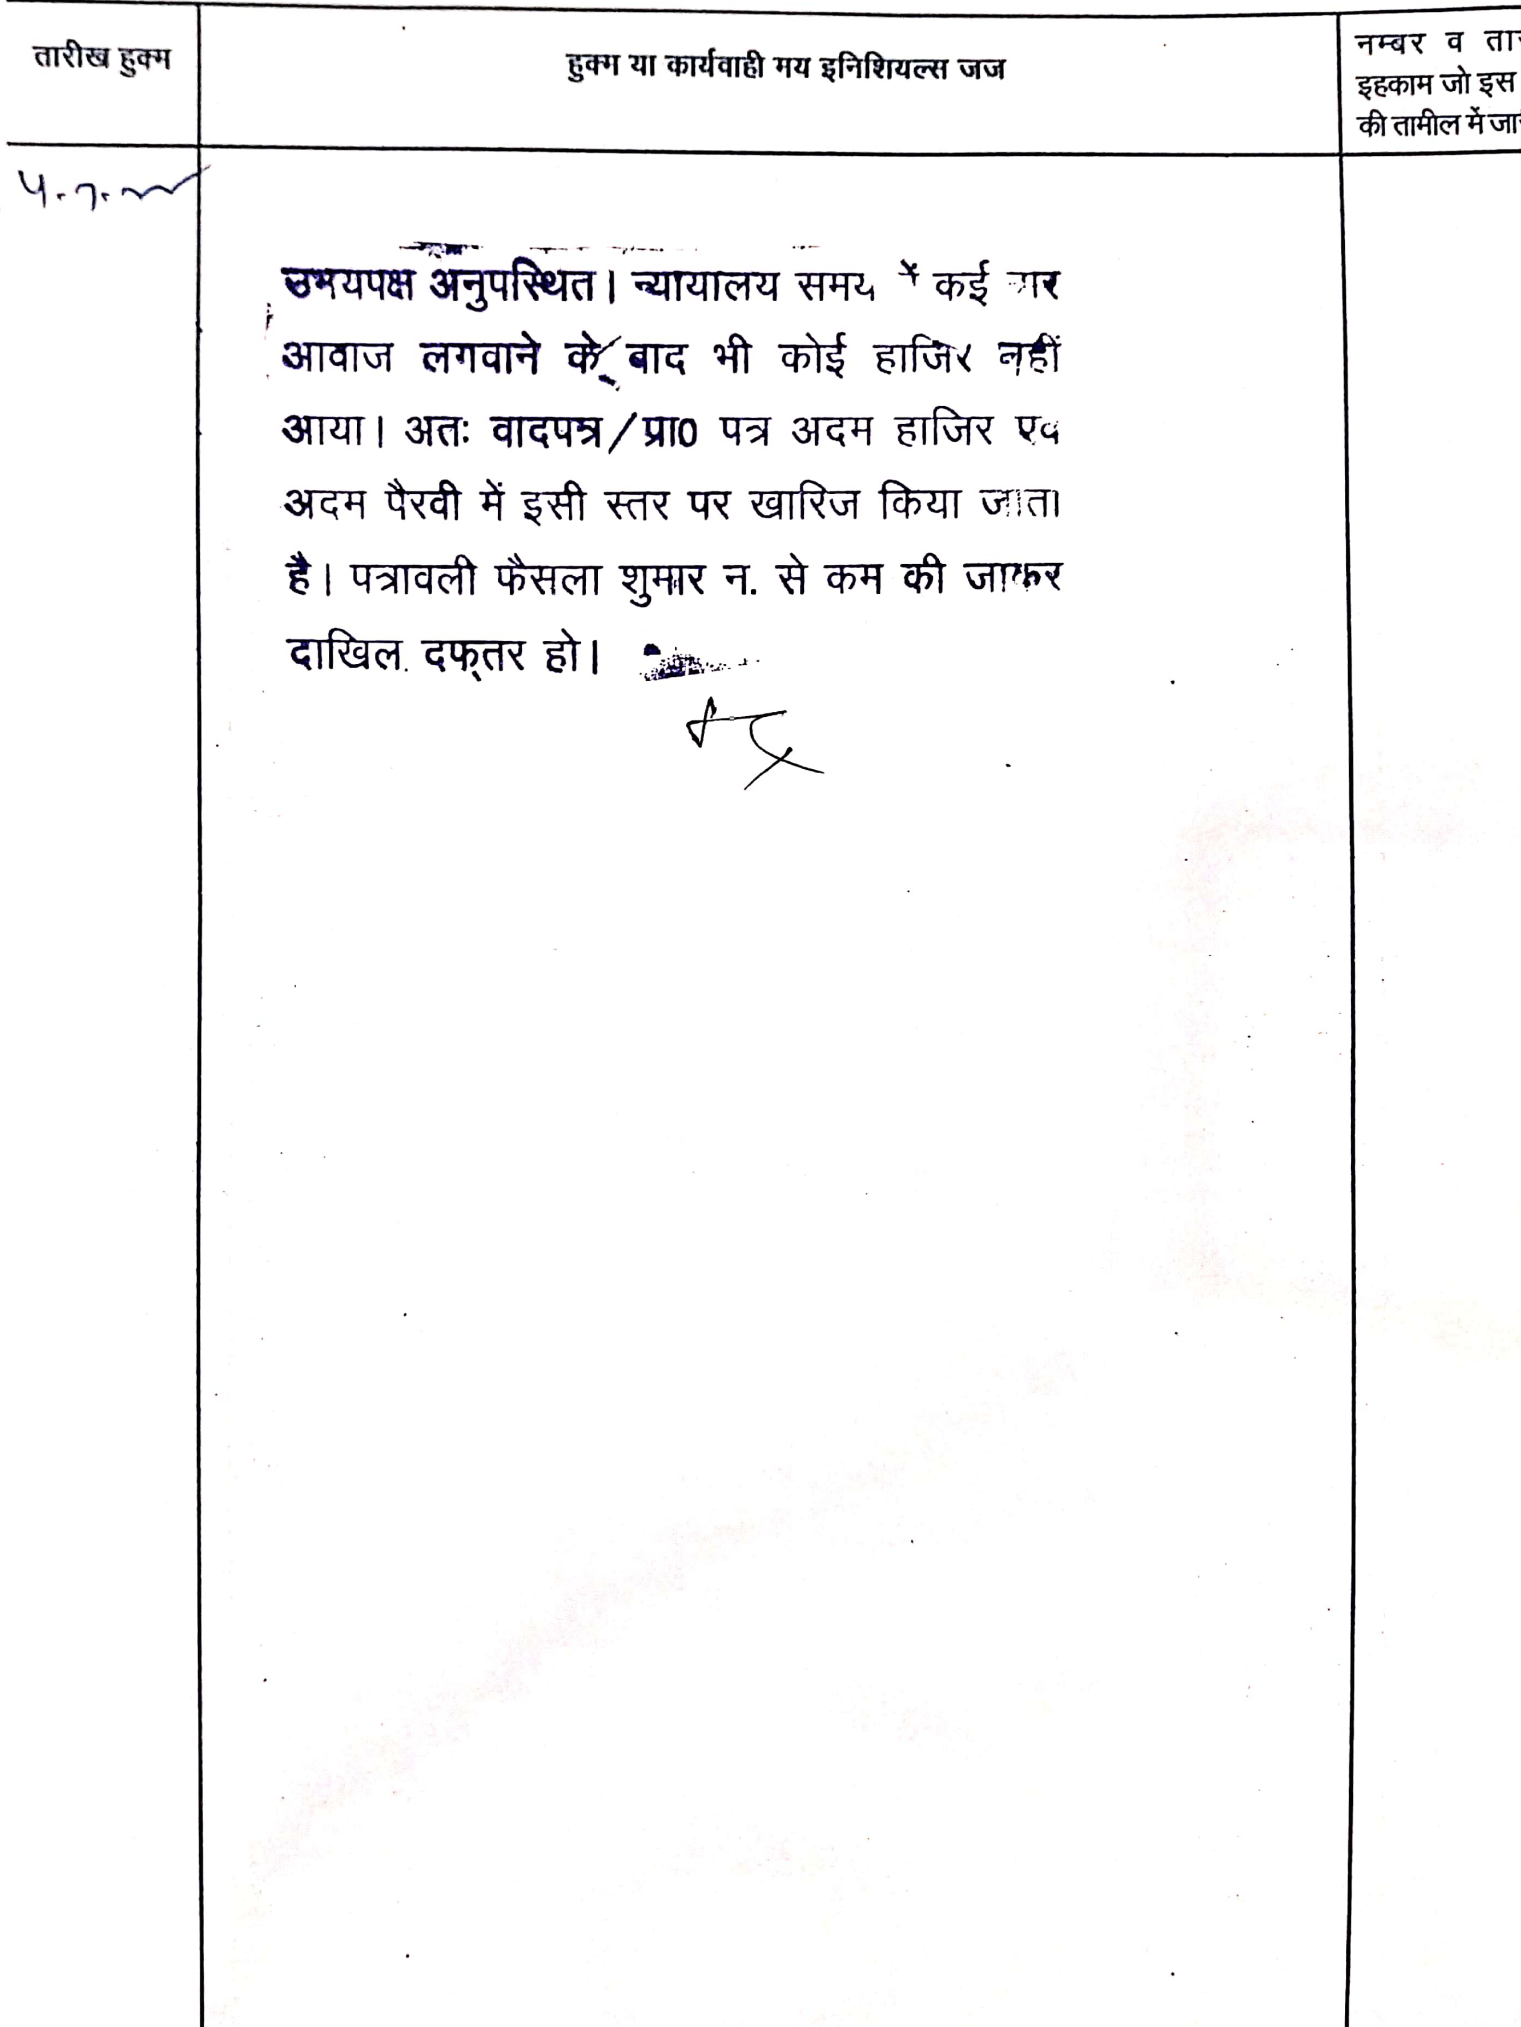 तारीख हुक्म
हुक्म या कार्यवाही मय इनिशियल्स जज
नम्बर व
इहकाम जो इस
की तामील में
उभयपक्ष अनुपस्थित। न्यायालय समय में कई बार
आवाज लगवाने के बाद भी कोई हाजिर नहीं
आया। अतः वादपत्र/प्रा0 पत्र अदम हाजिर एवं
अदम पैरवी में इसी स्तर पर खारिज किया जाता
है। पत्रावली फैसला शुमार न. से कम की जाकर
दाखिल दफ्तर हो।